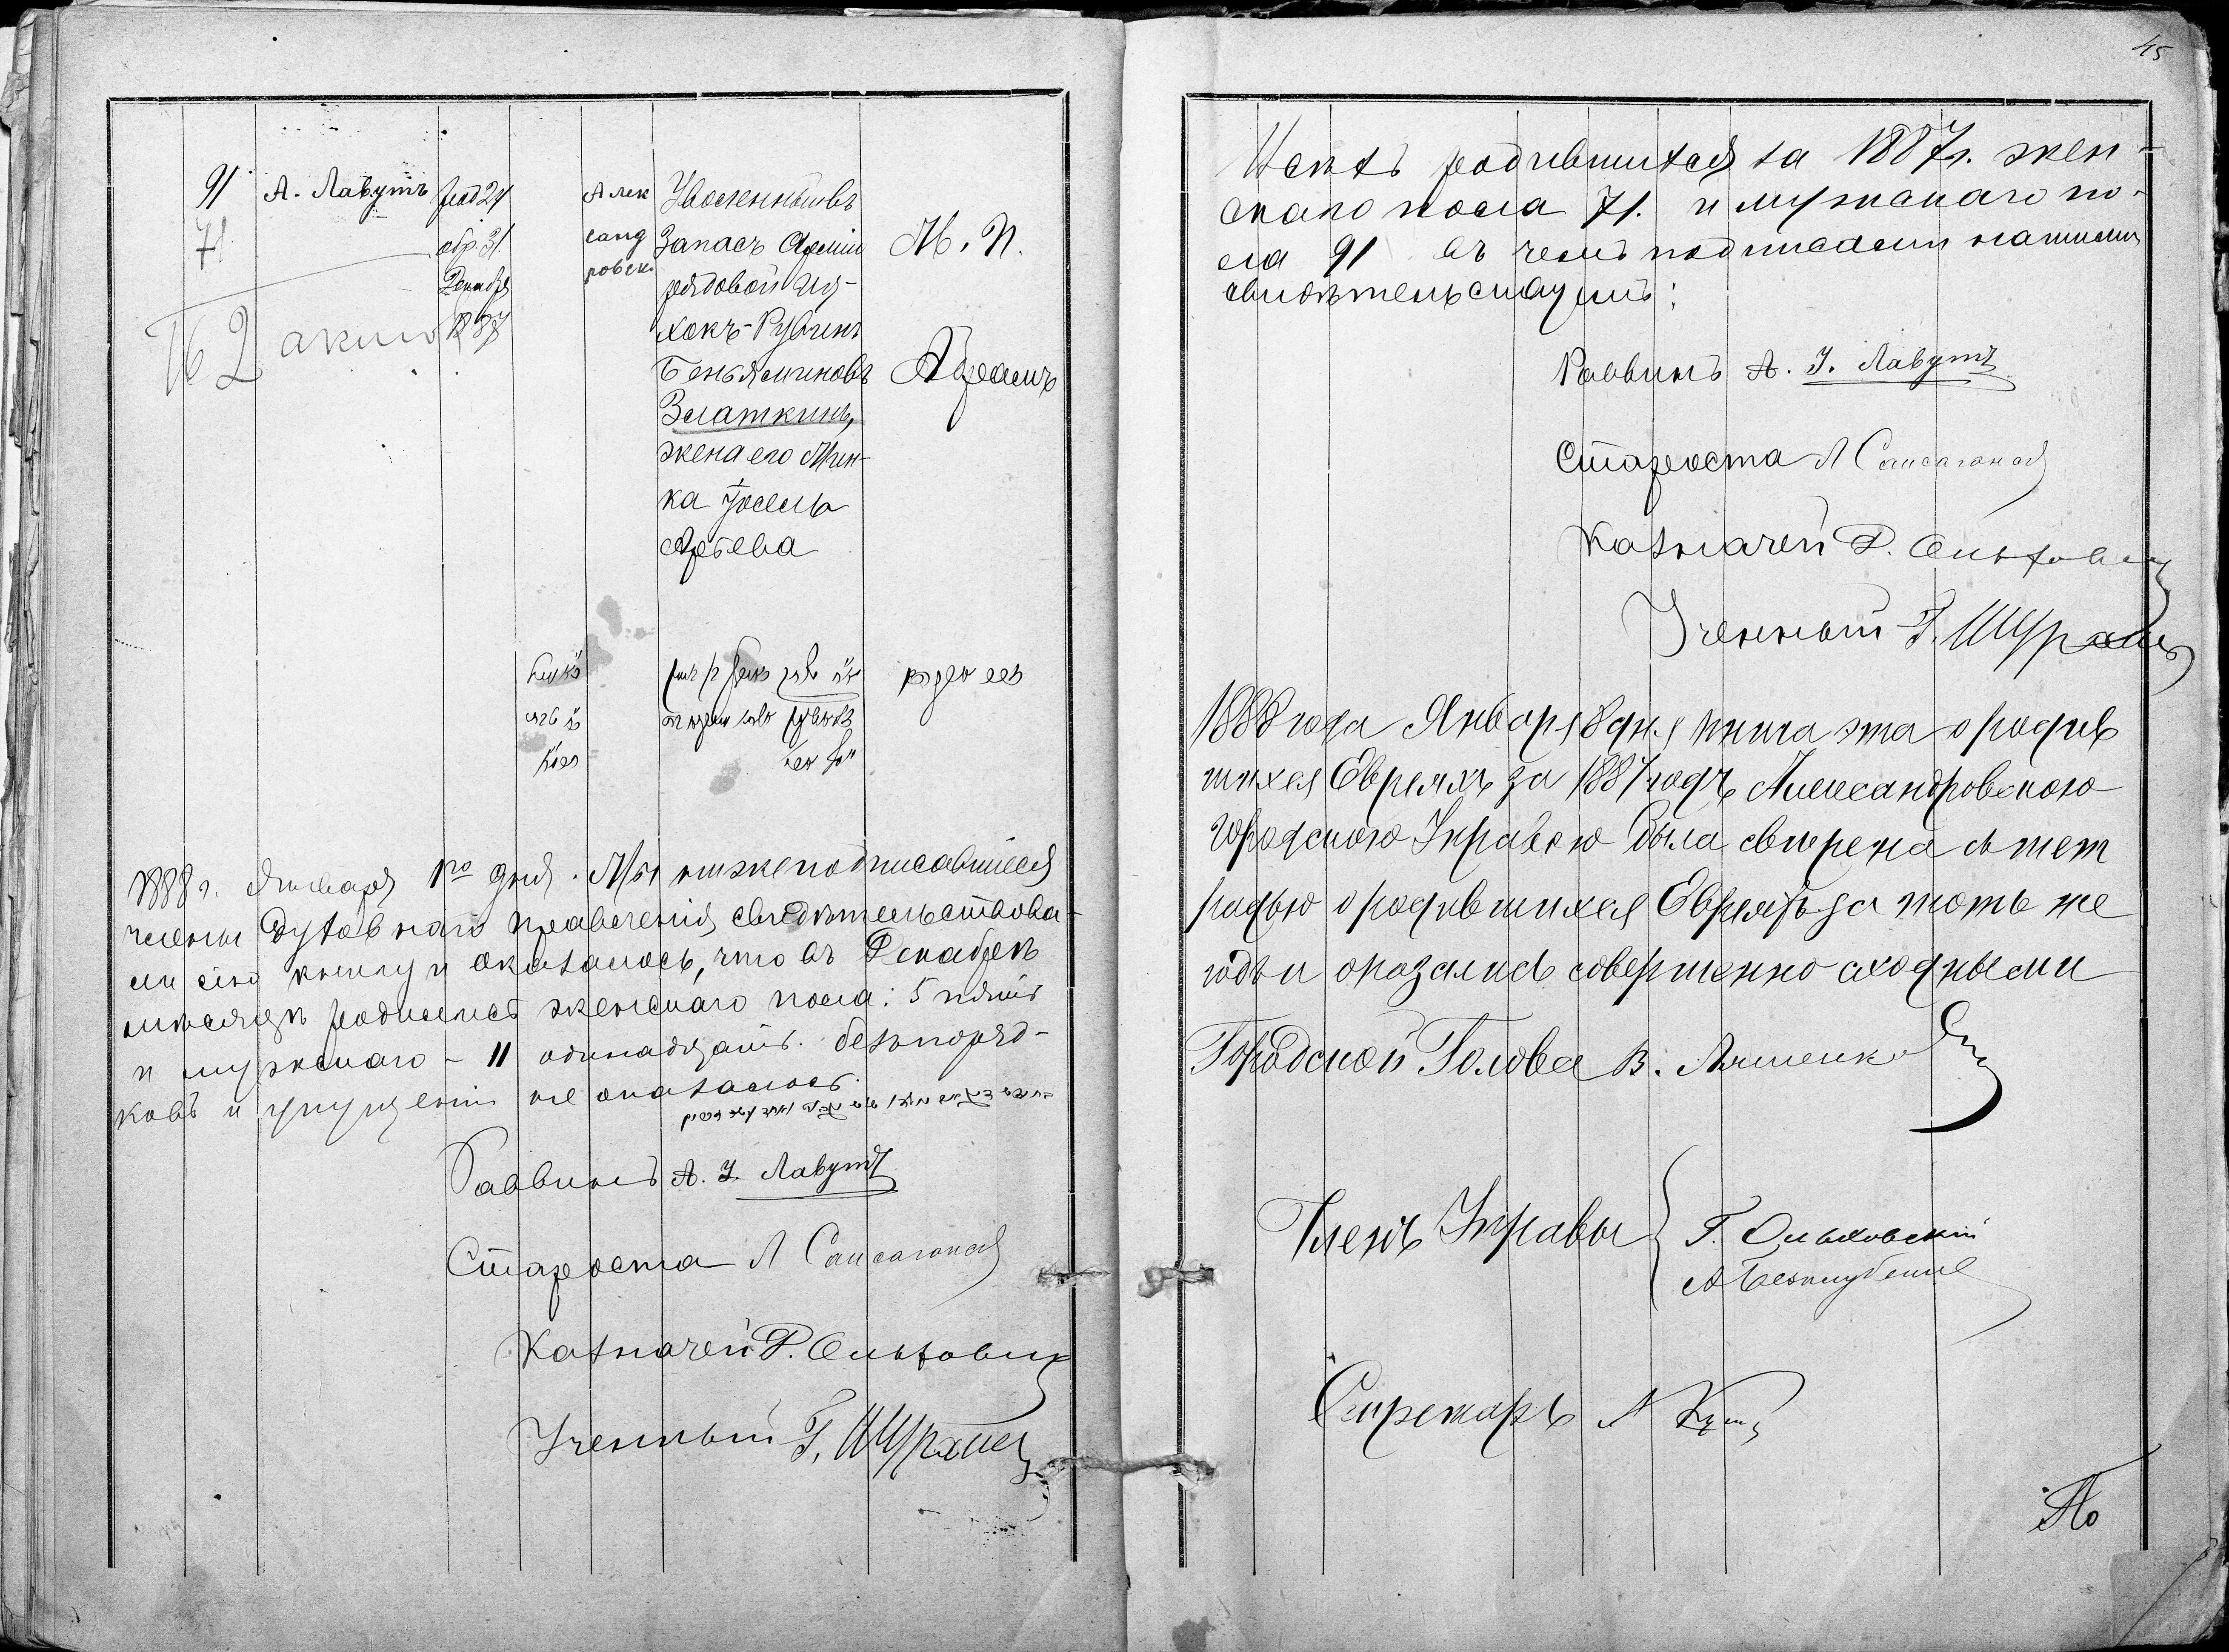 91
71
162 акт
А. Лавутъ
род 24
обр. 31
Декабря
1887
Алек
санд
ровск.
Уволенный въ
Запасъ Арміи
рядовой Иц-
хокъ-Рувинъ
Беньяминовъ
Златкинъ,
жена его Мин-
ка Іосель
Арьева
М. П.
Абрамъ
1888 г. Января 1го дня. Мы нижеподписавшіеся
члены Духовнаго правленія, свидѣтельствова-
ли сію книгу и оказалось, что въ Декабрѣ
мѣсяцѣ родилось женскаго пола: 5 пять
и мужскаго - 11 одинадцать. безпоряд-
ковъ и упущеній не оказалось.
Раввинъ А. І. Лавутъ
Староста Л
Казначей Р. Ольховик
Ученный Г. Шурхин
45
Всѣхъ родившихся за 1887 г. жен-
скаго пола 71. и мужскаго по-
ла 91 въ чемъ подписями нашими
свидѣтельствуемъ:
Раввинъ А. І. Лавутъ
Староста Л
Казначей Р. Ольховик
Ученный Г. Шурхин
1888 года Января 8 дня книга эта о родив
шихся Евреяхъ за 1887 годъ Александровскою
Городскою Управою была свѣрена съ тет
радью о родившихся Евреяхъ за тотъ же
годъ и оказались совершенно сходными
Городской Голова В. Ляшенко
Членъ Управы
Г. Ольховскій
А
Секретарь А
По